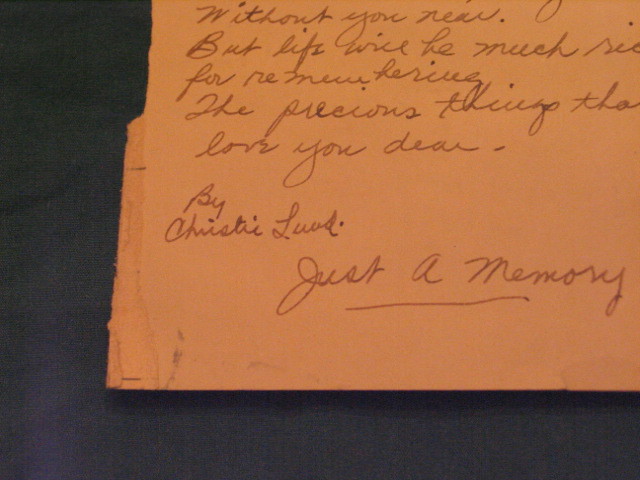 Without you near.
But life will be much ric
for remembering
The precious things tha
love you dear -
By
Christie Lund.
Just A Memory